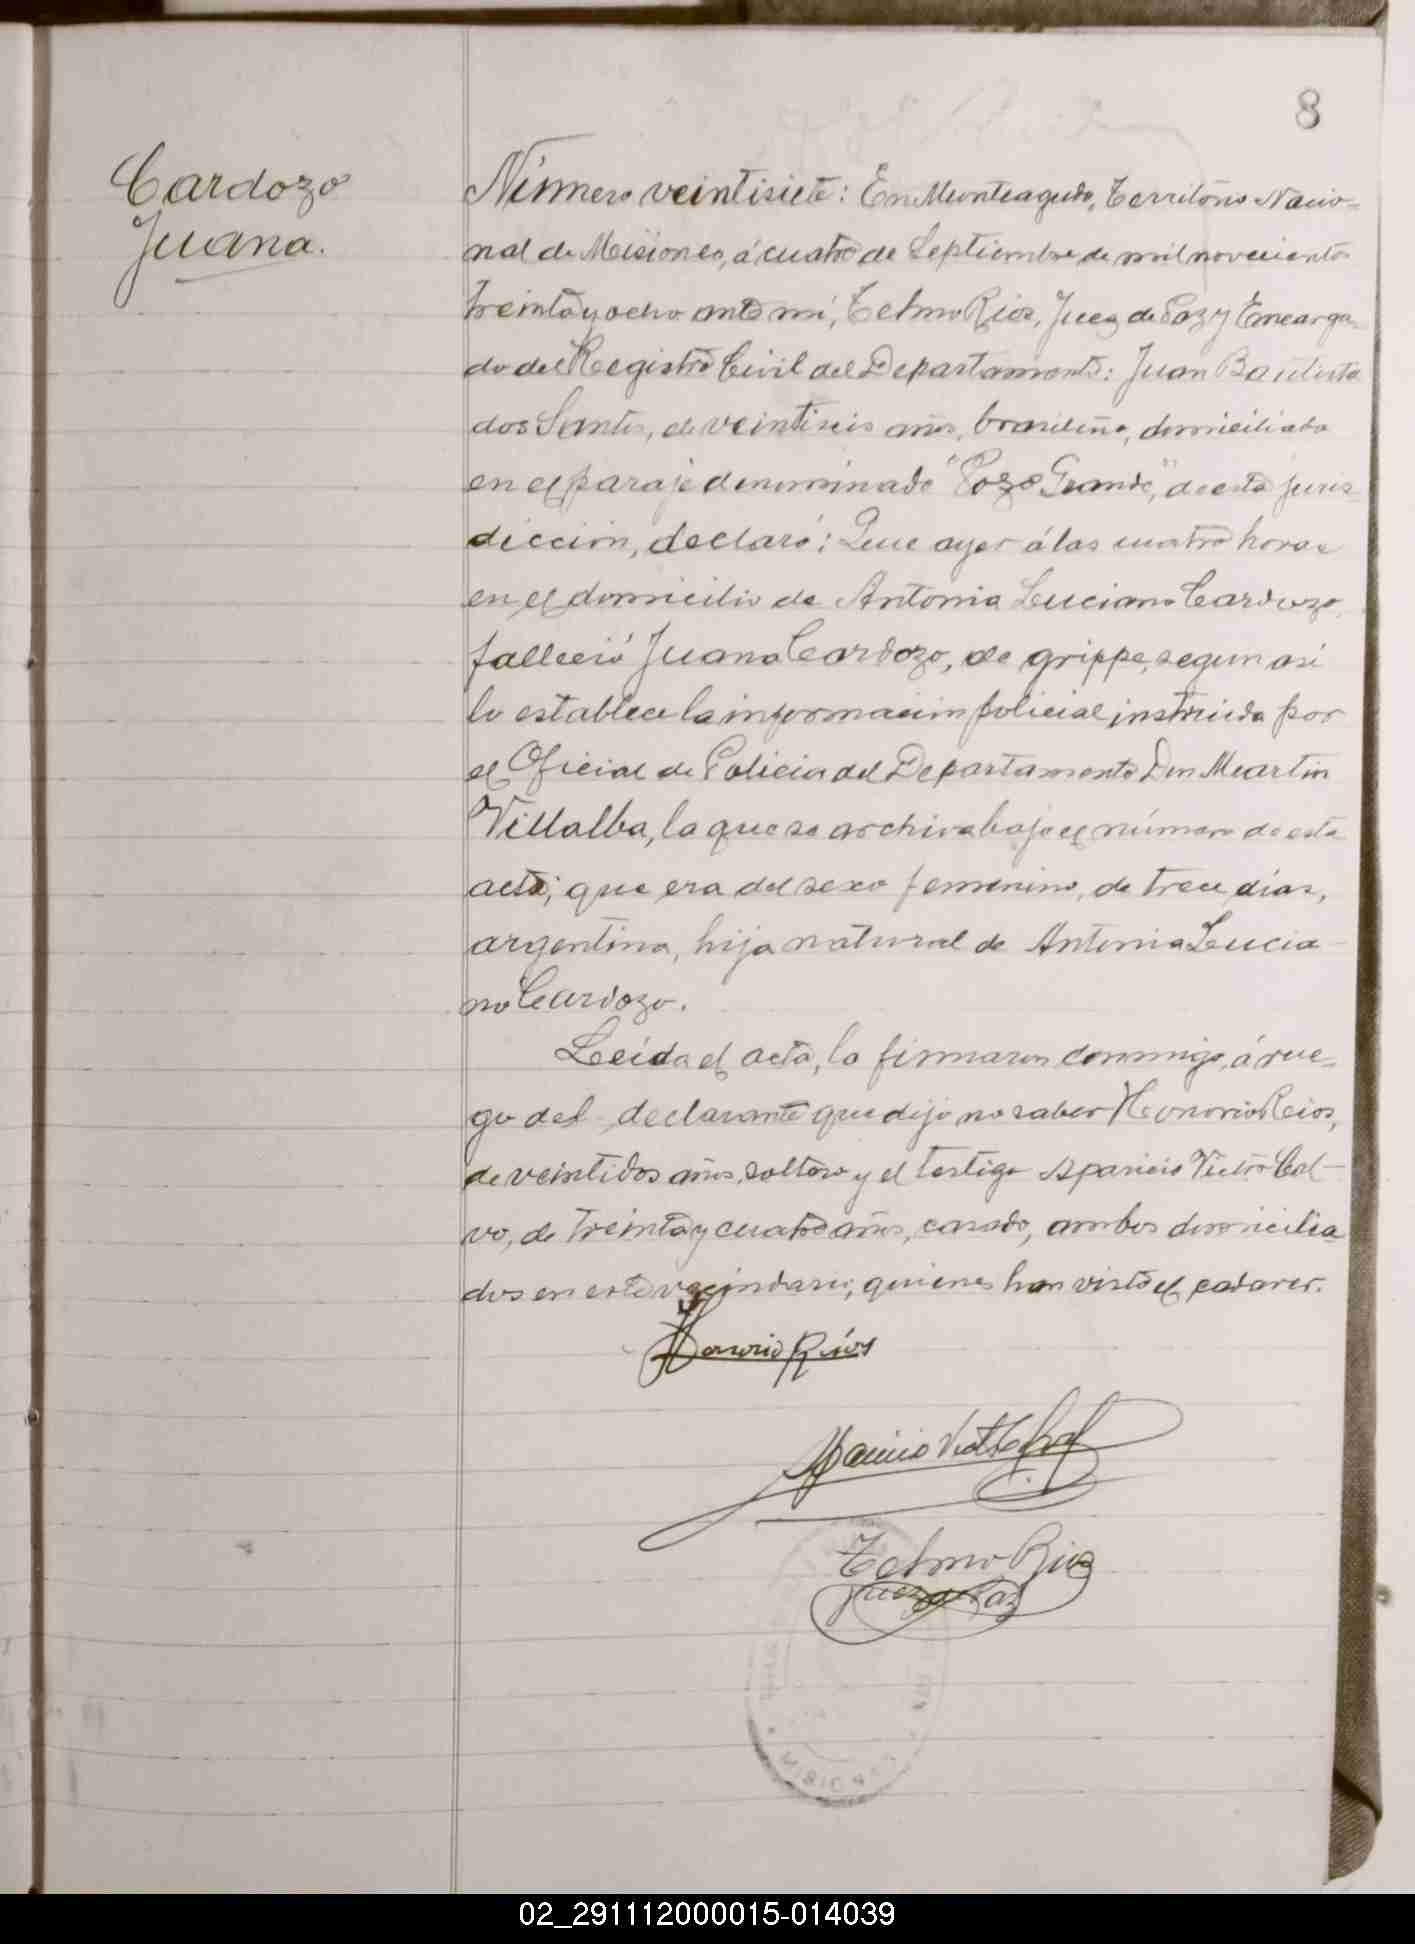 8
Cardozo
Juana.
Número veintisiete: En Monteagudo, Territorio Nacio-
nal de Misiones, á cuatro de Septiembre de mil novecientos
treinta y ocho ante mí, Telmo Rios, Juez de Paz y Encarga-
do del Registro Civil del Departamento: Juan Bautista
dos Santos, de veintiseis años, brasileño, domiciliado
en el paraje denominado "Pozo Grande", de esta juris-
dicción, declaró: Que ayer á las cuatro horas
en el domicilio de Antonia Luciano Cardozo,
falleció Juana Cardozo, de grippe, segun así
lo establece la información policial instruida por
el Oficial de Policia del Departamento Don Martin
Villalba, la que se archiva bajo el número de esta
acta; que era del sexo femenino, de trece días,
argentina, hija natural de Antonia Lucia-
no Cardozo.
Leída el acta, la firmaron conmigo, á rue-
go del declarante que dijo no saber Honorio Rios,
de veintidos años, soltero y el testigo Aparicio Victor Cal-
vo, de treinta y cuatro años, casado, ambos domicilia-
dos en este vecindario; quienes han visto el cadaver.
Honorio Ríos
Telmo Rios
Juez de Paz
02_291112000015-014039